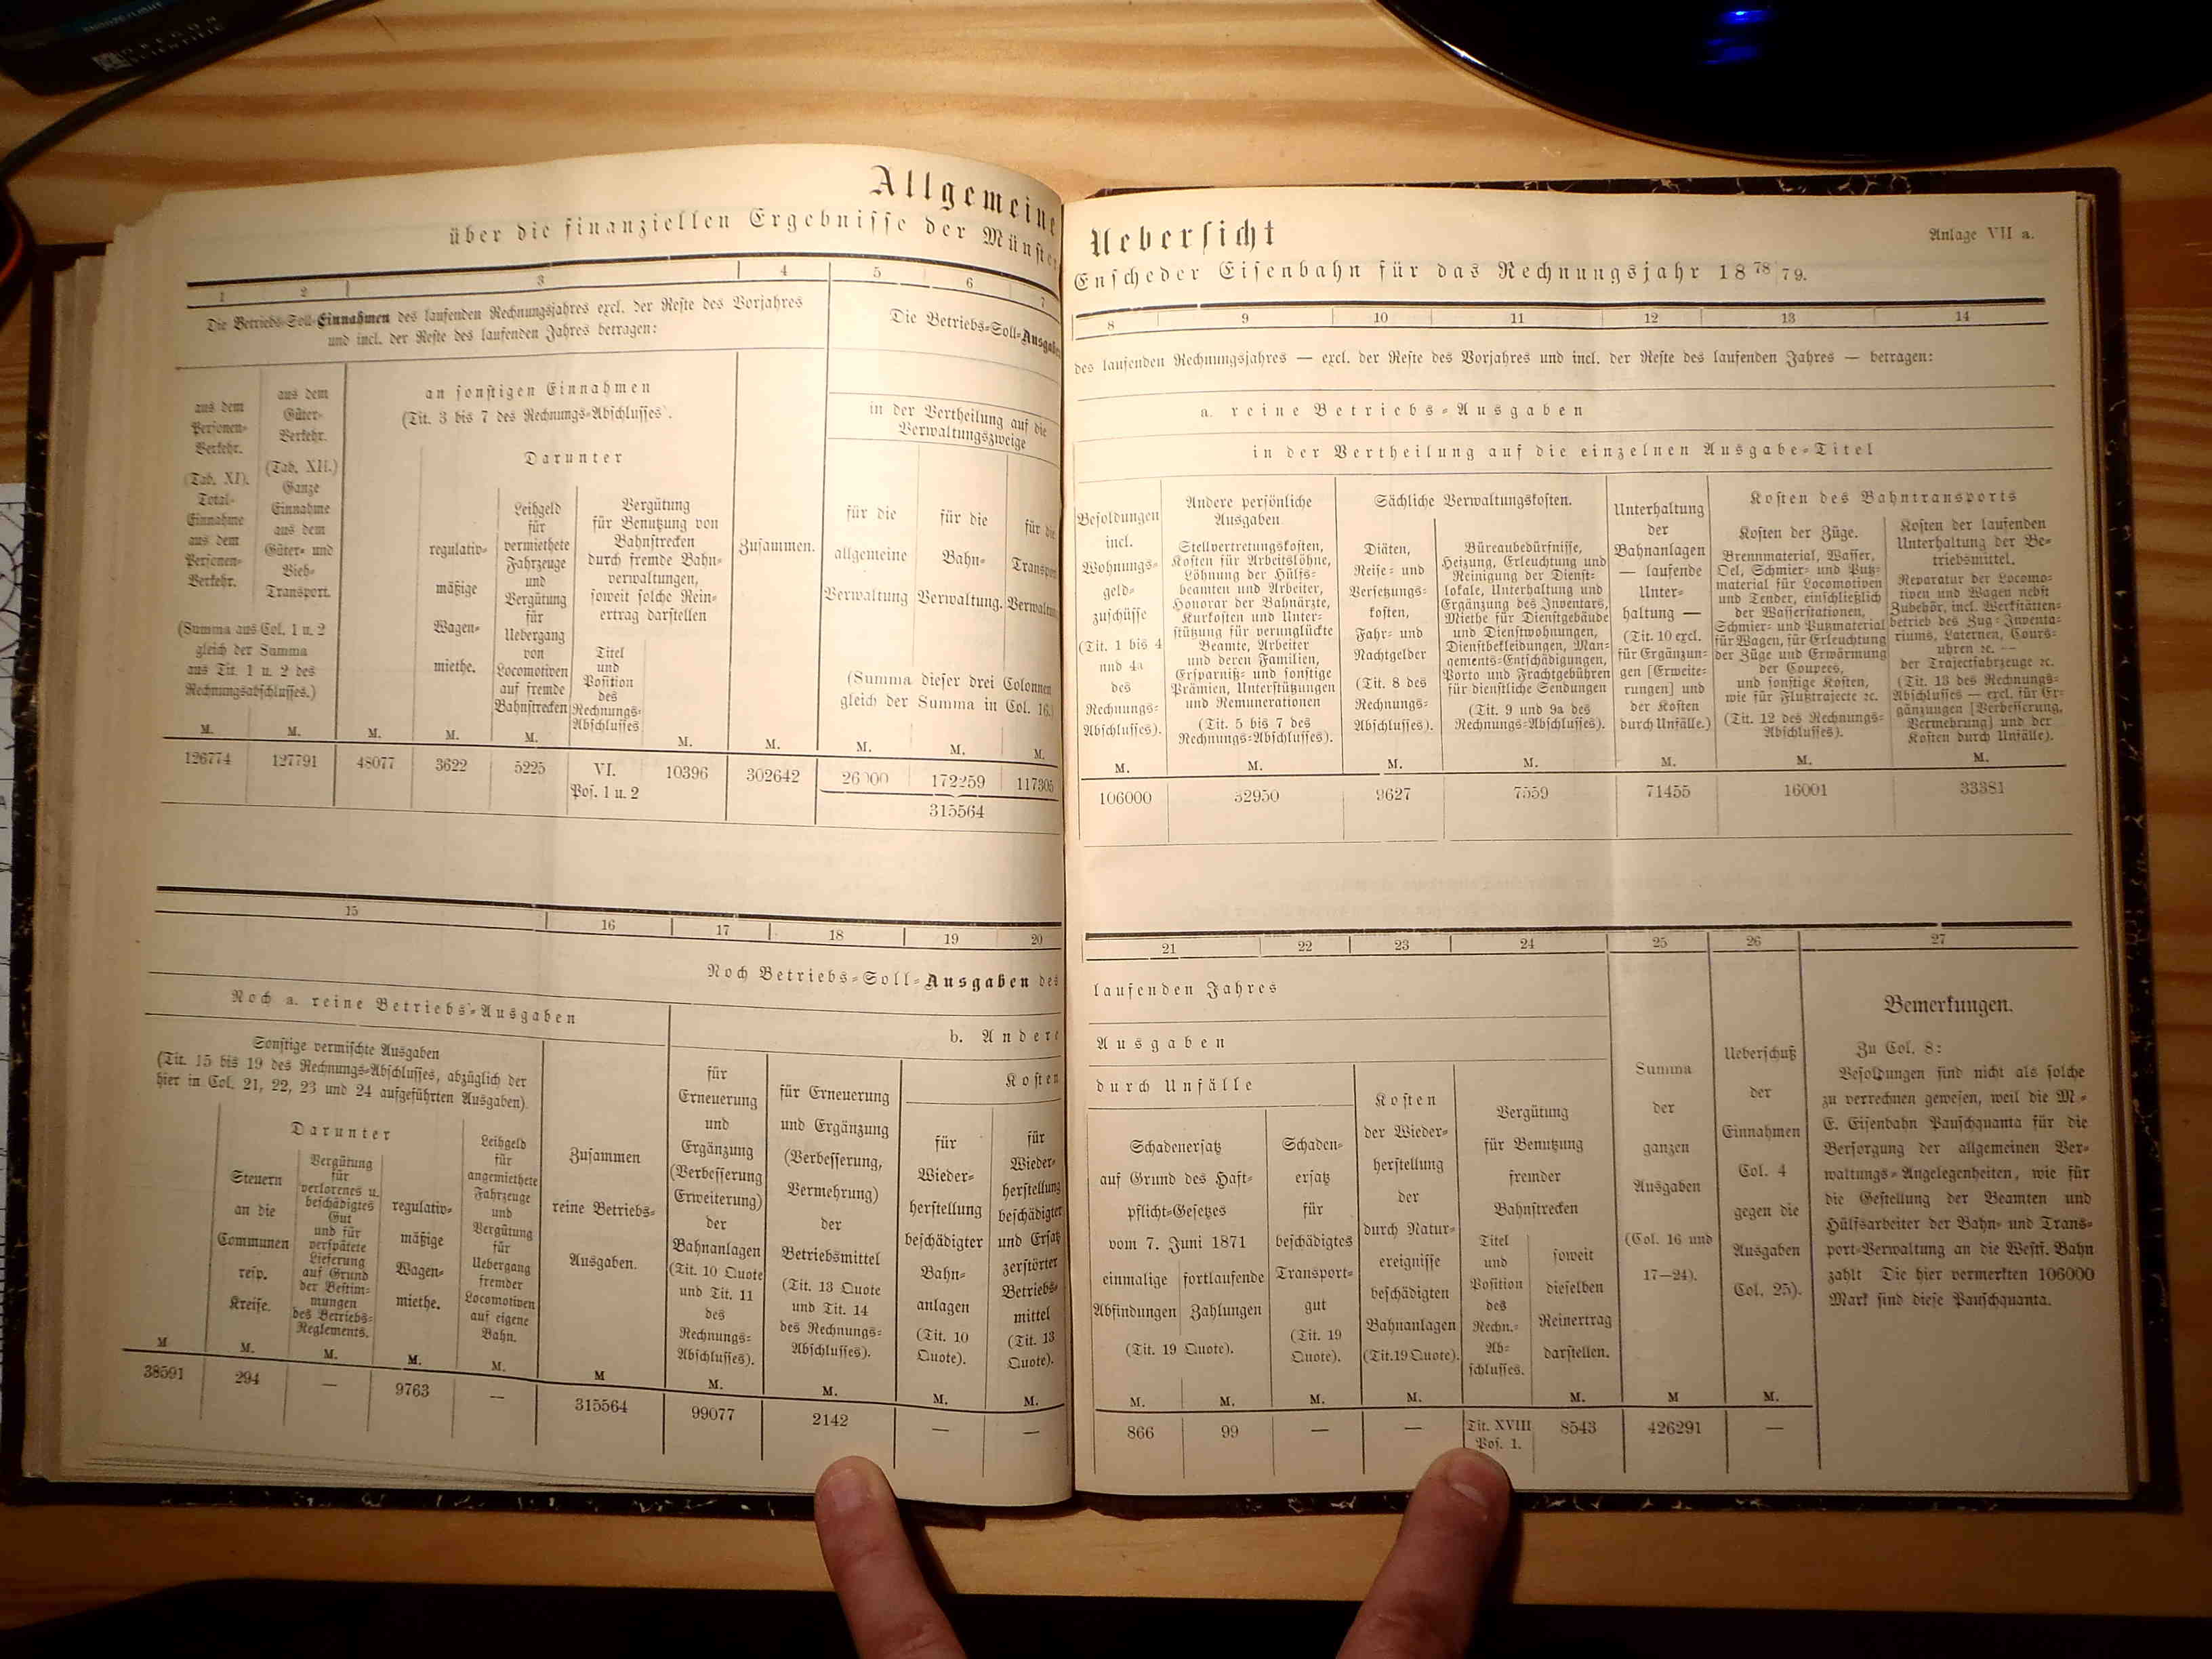 OREGON
SCIENTIFIC
Allgemeine Uebersicht
Anlage VII a.
über die finanziellen Ergebnisse der Münster Enscheder Eisenbahn für das Rechnungsjahr 18 78/79.
1 2 3 4 5 6 7
Die Betriebs-Soll-Einnahmen des laufenden Rechnungsjahres excl. der Reste des Vorjahres
und incl. der Reste des laufenden Jahres betragen:
Die Betriebs-Soll-Ausgaben
aus dem
Personen-
Verkehr.
(Tab. XI).
Total-
Einnahme
aus dem
Personen-
Verkehr.
aus dem
Güter-
Verkehr.
(Tab. XII.)
Ganze
Einnahme
aus dem
Güter- und
Vieh-
Transport.
(Summa aus Col. 1 u. 2
gleich der Summa
aus Tit. 1 u. 2 des
Rechnungsabschlusses.)
an sonstigen Einnahmen
(Tit. 3 bis 7 des Rechnungs-Abschlusses).
Darunter
regulativ-
mäßige
Wagen-
miethe.
Leihgeld
für
vermiethete
Fahrzeuge
und
Vergütung
für
Uebergang
von
Locomotiven
auf fremde
Bahnstrecken
Vergütung
für Benutzung von
Bahnstrecken
durch fremde Bahn-
verwaltungen,
soweit solche Rein-
ertrag darstellen
Titel
und
Position
des
Rechnungs-
Abschlusses
Zusammen.
in der Vertheilung auf die
Verwaltungszweige
für die
allgemeine
Verwaltung
für die
Bahn-
Verwaltung.
für die
Transport
Verwaltung
(Summa dieser drei Colonnen
gleich der Summa in Col. 16.)
M. M. M. M. M. M. M. M. M. M.
126774 127791 48077 3622 5225 VI. 10396 302642 26000 172259 117305
Pos. 1 u. 2
315564
8 9 10 11 12 13 14
des laufenden Rechnungsjahres — excl. der Reste des Vorjahres und incl. der Reste des laufenden Jahres — betragen:
a. reine Betriebs-Ausgaben
in der Vertheilung auf die einzelnen Ausgabe-Titel
Besoldungen
incl.
Wohnungs-
geld-
zuschüsse
(Tit. 1 bis 4
und 4a
des
Rechnungs-
Abschlusses).
Andere persönliche
Ausgaben.
Stellvertretungskosten,
Kosten für Arbeitslöhne,
Löhnung der Hülfs-
beamten und Arbeiter,
Honorar der Bahnärzte,
Kurkosten und Unter-
stützung für verunglückte
Beamte, Arbeiter
und deren Familien,
Ersparniß- und sonstige
Prämien, Unterstützungen
und Remunerationen
(Tit. 5 bis 7 des
Rechnungs-Abschlusses).
Sächliche Verwaltungskosten.
Diäten,
Reise- und
Versetzungs-
kosten,
Fahr- und
Nachtgelder
(Tit. 8 des
Rechnungs-
Abschlusses).
Büreaubedürfnisse,
Heizung, Erleuchtung und
Reinigung der Dienst-
lokale, Unterhaltung und
Ergänzung des Inventars,
Miethe für Dienstgebäude
und Dienstwohnungen,
Dienstbekleidungen, Man-
gements-Entschädigungen,
Porto und Frachtgebühren
für dienstliche Sendungen
(Tit. 9 und 9a des
Rechnungs-Abschlusses).
Unterhaltung
der
Bahnanlagen
— laufende
Unter-
haltung —
(Tit. 10 excl.
für Ergänzun-
gen [Erweite-
rungen] und
der Kosten
durch Unfälle.)
Kosten des Bahntransports
Kosten der Züge.
Brennmaterial, Wasser,
Oel, Schmier- und Putz-
material für Locomotiven
und Tender, einschließlich
der Wasserstationen,
Schmier- und Putzmaterial
für Wagen, für Erleuchtung
der Züge und Erwärmung
der Coupees,
und sonstige Kosten,
wie für Flußtrajecte ꝛc.
(Tit. 12 des Rechnungs-
Abschlusses).
Kosten der laufenden
Unterhaltung der Be-
triebsmittel.
Reparatur der Locomo-
tiven und Wagen nebst
Zubehör, incl. Werkstätten-
betrieb des Zug-Inventa-
riums, Laternen, Cours-
uhren ꝛc. —
der Trajectfahrzeuge ꝛc.
(Tit. 13 des Rechnungs-
Abschlusses — excl. für Er-
gänzungen [Verbesserung,
Vermehrung] und der
Kosten durch Unfälle).
M. M. M. M. M. M. M.
106000 32950 9627 7559 71455 16001 33381
15 16 17 18 19 20
Noch Betriebs-Soll-Ausgaben des
Noch a. reine Betriebs-Ausgaben
b. Andere
Sonstige vermischte Ausgaben
(Tit. 15 bis 19 des Rechnungs-Abschlusses, abzüglich der
hier in Col. 21, 22, 23 und 24 aufgeführten Ausgaben).
Darunter
Steuern
an die
Communen
resp.
Kreise.
Vergütung
für
verlorenes u.
beschädigtes
Gut
und für
verspätete
Lieferung
auf Grund
der Bestim-
mungen
des Betriebs-
Reglements.
regulativ-
mäßige
Wagen-
miethe.
Leihgeld
für
angemiethete
Fahrzeuge
und
Vergütung
für
Uebergang
fremder
Locomotiven
auf eigene
Bahn.
Zusammen
reine Betriebs-
Ausgaben.
für
Erneuerung
und
Ergänzung
(Verbesserung
Erweiterung)
der
Bahnanlagen
(Tit. 10 Quote
und Tit. 11
des
Rechnungs-
Abschlusses).
für Erneuerung
und Ergänzung
(Verbesserung,
Vermehrung)
der
Betriebsmittel
(Tit. 13 Quote
und Tit. 14
des Rechnungs-
Abschlusses).
Kosten
für
Wieder-
herstellung
beschädigter
Bahn-
anlagen
(Tit. 10
Quote).
für
Wieder-
herstellung
beschädigter
und Ersatz
zerstörter
Betriebs-
mittel
(Tit. 13
Quote).
M M. M. M. M. M M. M. M. M.
38591 294 — 9763 — 315564 99077 2142 — —
21 22 23 24 25 26 27
laufenden Jahres
Ausgaben
durch Unfälle
Schadenersatz
auf Grund des Haft-
pflicht-Gesetzes
vom 7. Juni 1871
einmalige
Abfindungen
fortlaufende
Zahlungen
(Tit. 19 Quote).
Schaden-
ersatz
für
beschädigtes
Transport-
gut
(Tit. 19
Quote).
Kosten
der Wieder-
herstellung
der
durch Natur-
ereignisse
beschädigten
Bahnanlagen
(Tit. 19 Quote).
Vergütung
für Benutzung
fremder
Bahnstrecken
Titel
und
Position
des
Rechn.-
Ab-
schlusses.
soweit
dieselben
Reinertrag
darstellen.
Summa
der
ganzen
Ausgaben
(Col. 16 und
17—24).
Ueberschuß
der
Einnahmen
Col. 4
gegen die
Ausgaben
Col. 25).
Bemerkungen.
Zu Col. 8:
Besoldungen sind nicht als solche
zu verrechnen gewesen, weil die M.-
E. Eisenbahn Pauschquanta für die
Versorgung der allgemeinen Ver-
waltungs-Angelegenheiten, wie für
die Gestellung der Beamten und
Hülfsarbeiter der Bahn- und Trans-
port-Verwaltung an die Westf. Bahn
zahlt Die hier vermerkten 106000
Mark sind diese Pauschquanta.
M. M. M. M. M. M M.
866 99 — — Tit. XVIII 8543 426291 —
Pos. 1.